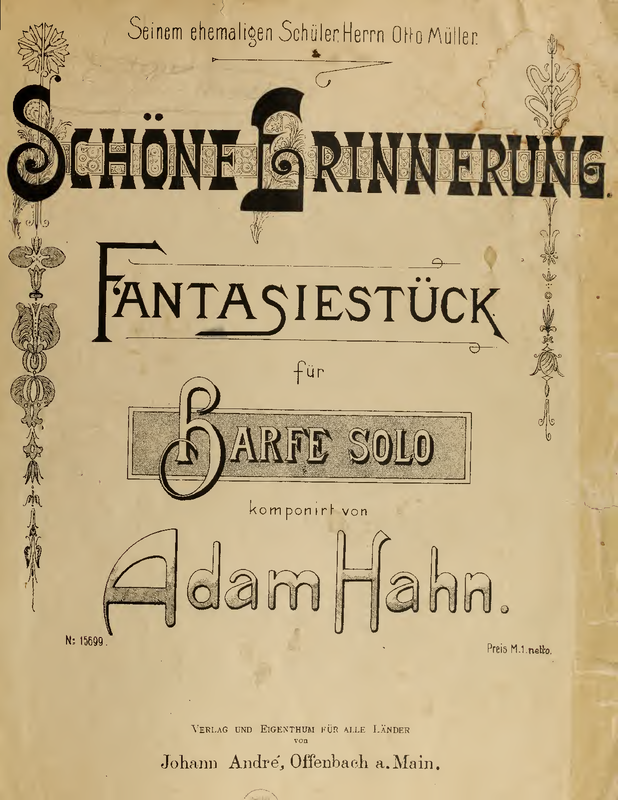 Seinem ehemaligen Schüler Herrn Otto Müller.
SCHÖNE ERINNERUNG.
FANTASIESTÜCK
für
HARFE SOLO
komponirt von
Adam Hahn.
N: 15699.
Preis M.1. netto.
VERLAG UND EIGENTHUM FÜR ALLE LÄNDER
von
Johann André, Offenbach a. Main.